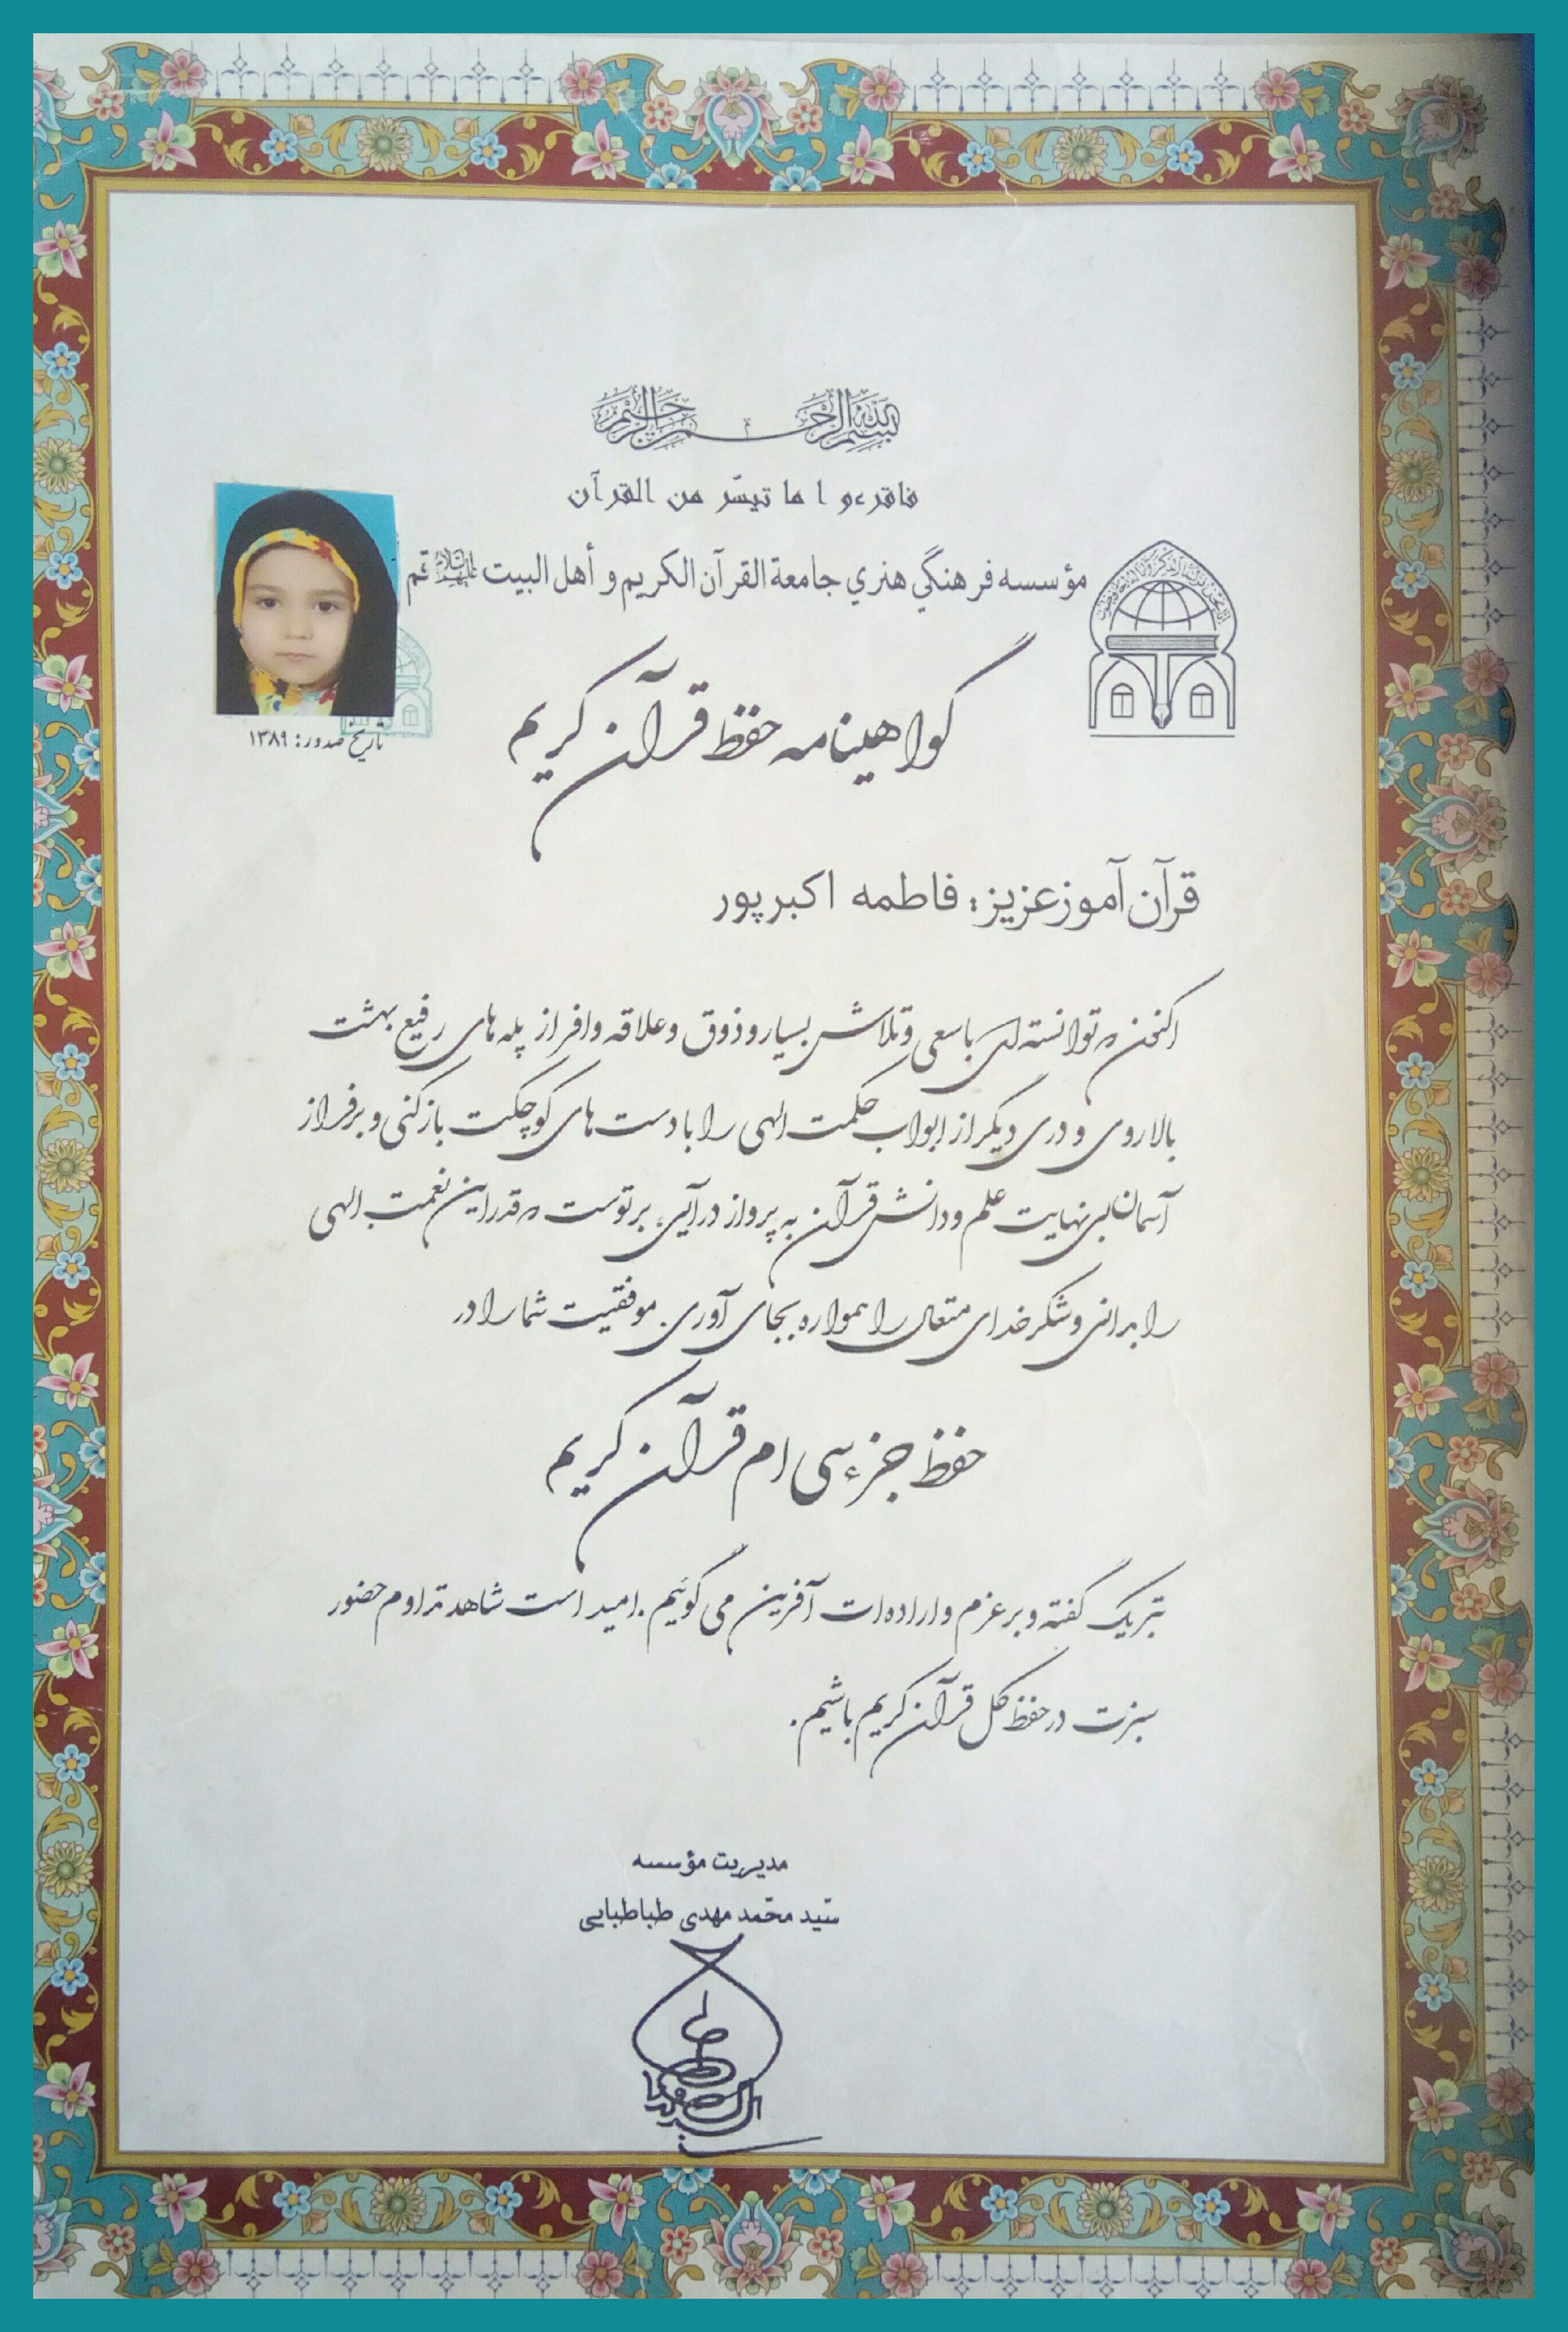 بسم الله الرحمن الرحیم
فاقرءو ا ما تیسّر من القرآن
مؤسسه فرهنگي هنري جامعة القرآن الکریم و أهل البیت علیهم السلام قم
تاریخ صدور: ۱۳۸۹
گواهینامه حفظ قرآن کریم
قرآن آموز عزیز: فاطمه اکبرپور
اکنون که توانسته‌ای با سعی و تلاش بسیار و ذوق و علاقه وافر از پله‌های رفیع بهشت
بالا روی و دری دیگر از ابواب حکمت الهی را با دست‌های کوچکت باز کنی و بر فراز
آسمان بی نهایت علم و دانش قرآن به پرواز درآیی، بر توست که قدر این نعمت الهی
را بدانی و شکر خدای متعال را همواره بجای آوری. موفقیت شما را در
حفظ جزء سی ام قرآن کریم
تبریک گفته و بر عزم و اراده‌ات آفرین می گوئیم. امید است شاهد تداوم حضور
سبزت در حفظ کل قرآن کریم باشیم.
مدیریت مؤسسه
سیّد محمّد مهدی طباطبایی